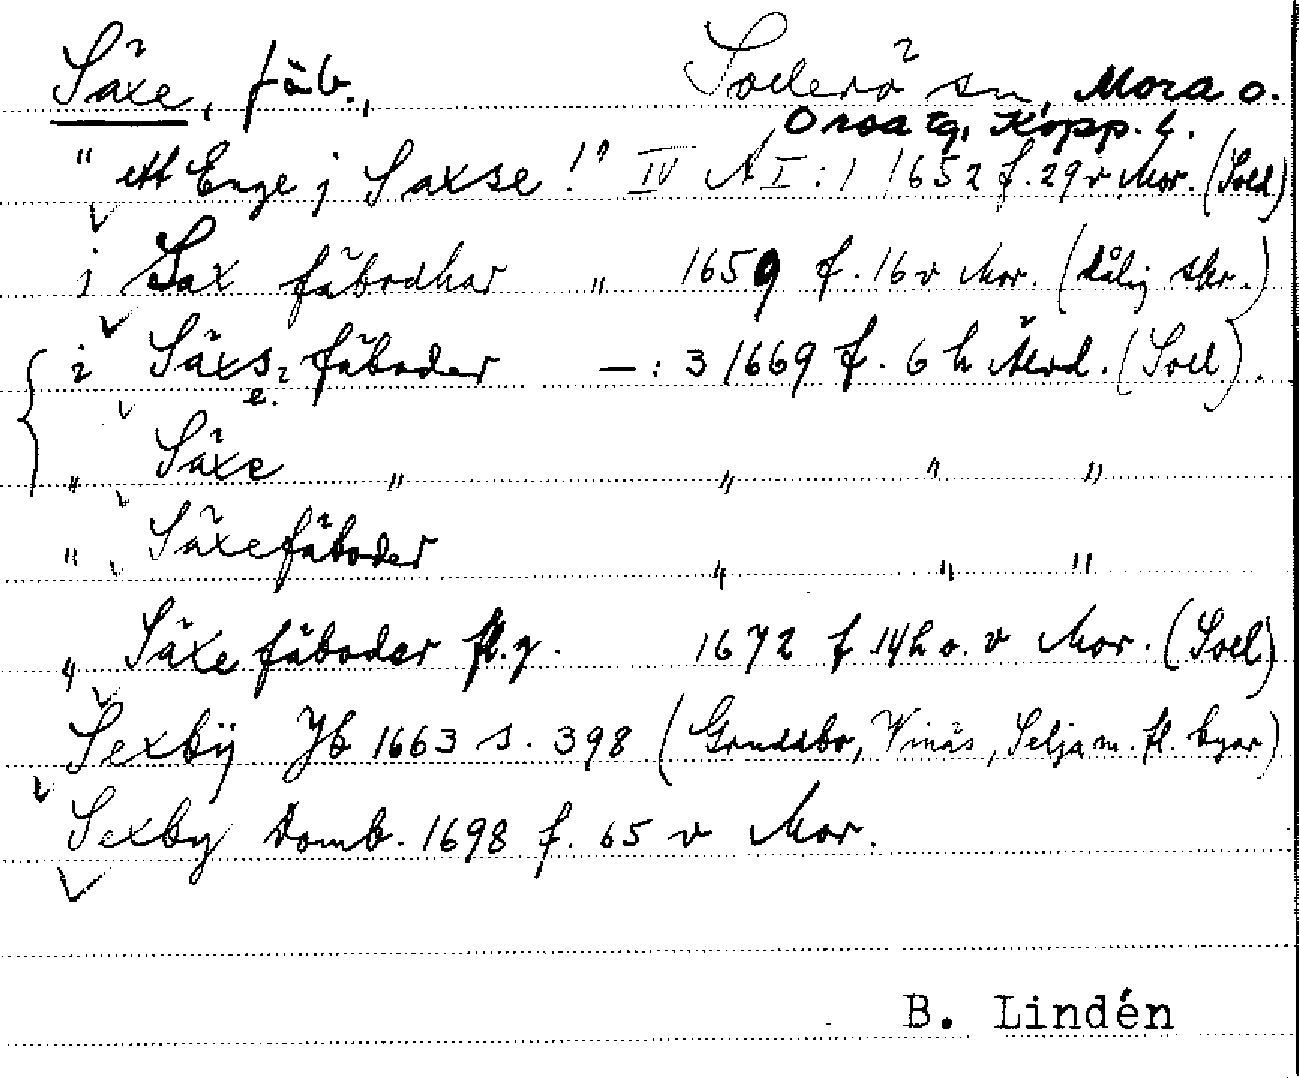 Säxe, fäb., Sollerö sn, Mora o.
Orsa tg, Kopp. l.
" ett Enge j Saxse!" IV A I:1 1652 f. 29 v Mor. (Soll)
j Sax fäbodhar " 1659 f. 16 v Mor. (dålig skr.)
i Säxs fäboder —:3 1669 f. 6 h Älvd. (Soll).
e.
" Säxe " " " "
" Säxefäboder " " "
" Säxe fäboder fl. g. 1672 f 14 h o. v Mor. (Soll)
Sexbÿ Jb 1663 s. 398 (Gruddbo, Vinäs, Selja m. fl. byar)
Sexby Domb. 1698 f. 65 v Mor.
B. Lindén